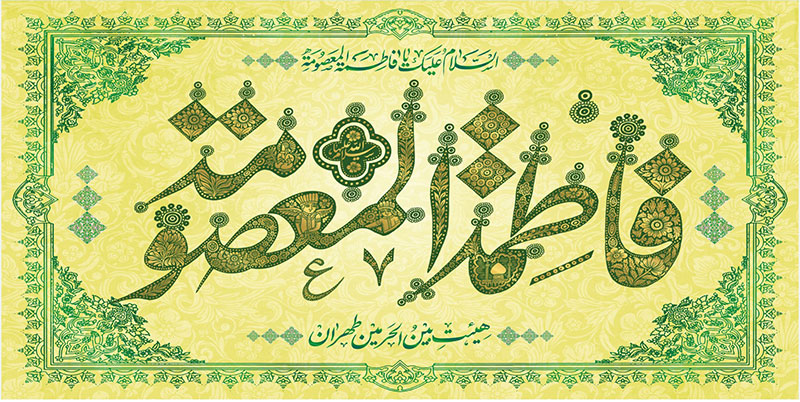 السلام علیک یا فاطمة المعصومة
فاطمة المعصومة
هیئت بین الحرمین طهران